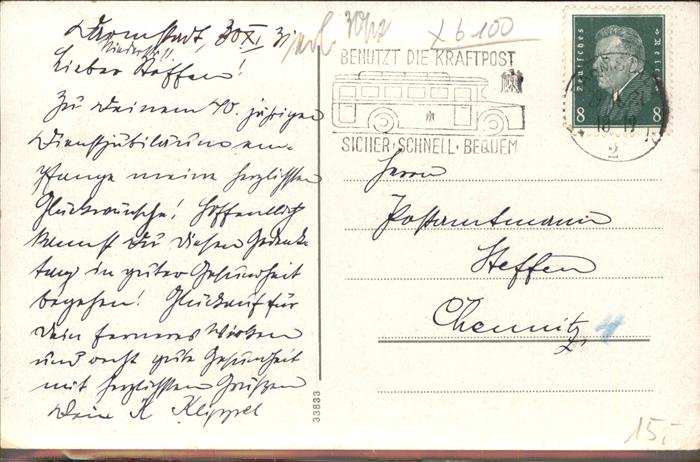 Darmstadt, 30 XI 31
Lieber Steffen!
Zu Deinem 40. jährigen
Dienstjubiläum em-
pfange meine herzlichsten
Glückwünsche! Hoffentlich
kannst Du diesen Gedenk-
tag in guter Gesundheit
begehen! Glückauf für
Dein ferneres Wirken
und recht gute Gesundheit
mit herzlichsten Grüßen
Dein K Klippel
x b 100
BENUTZT DIE KRAFTPOST
SICHER·SCHNELL·BEQUEM
Deutsches Reich
8 8
18-19
2
Herrn
Postamtmann
Steffen
Chemnitz
33833
15,-